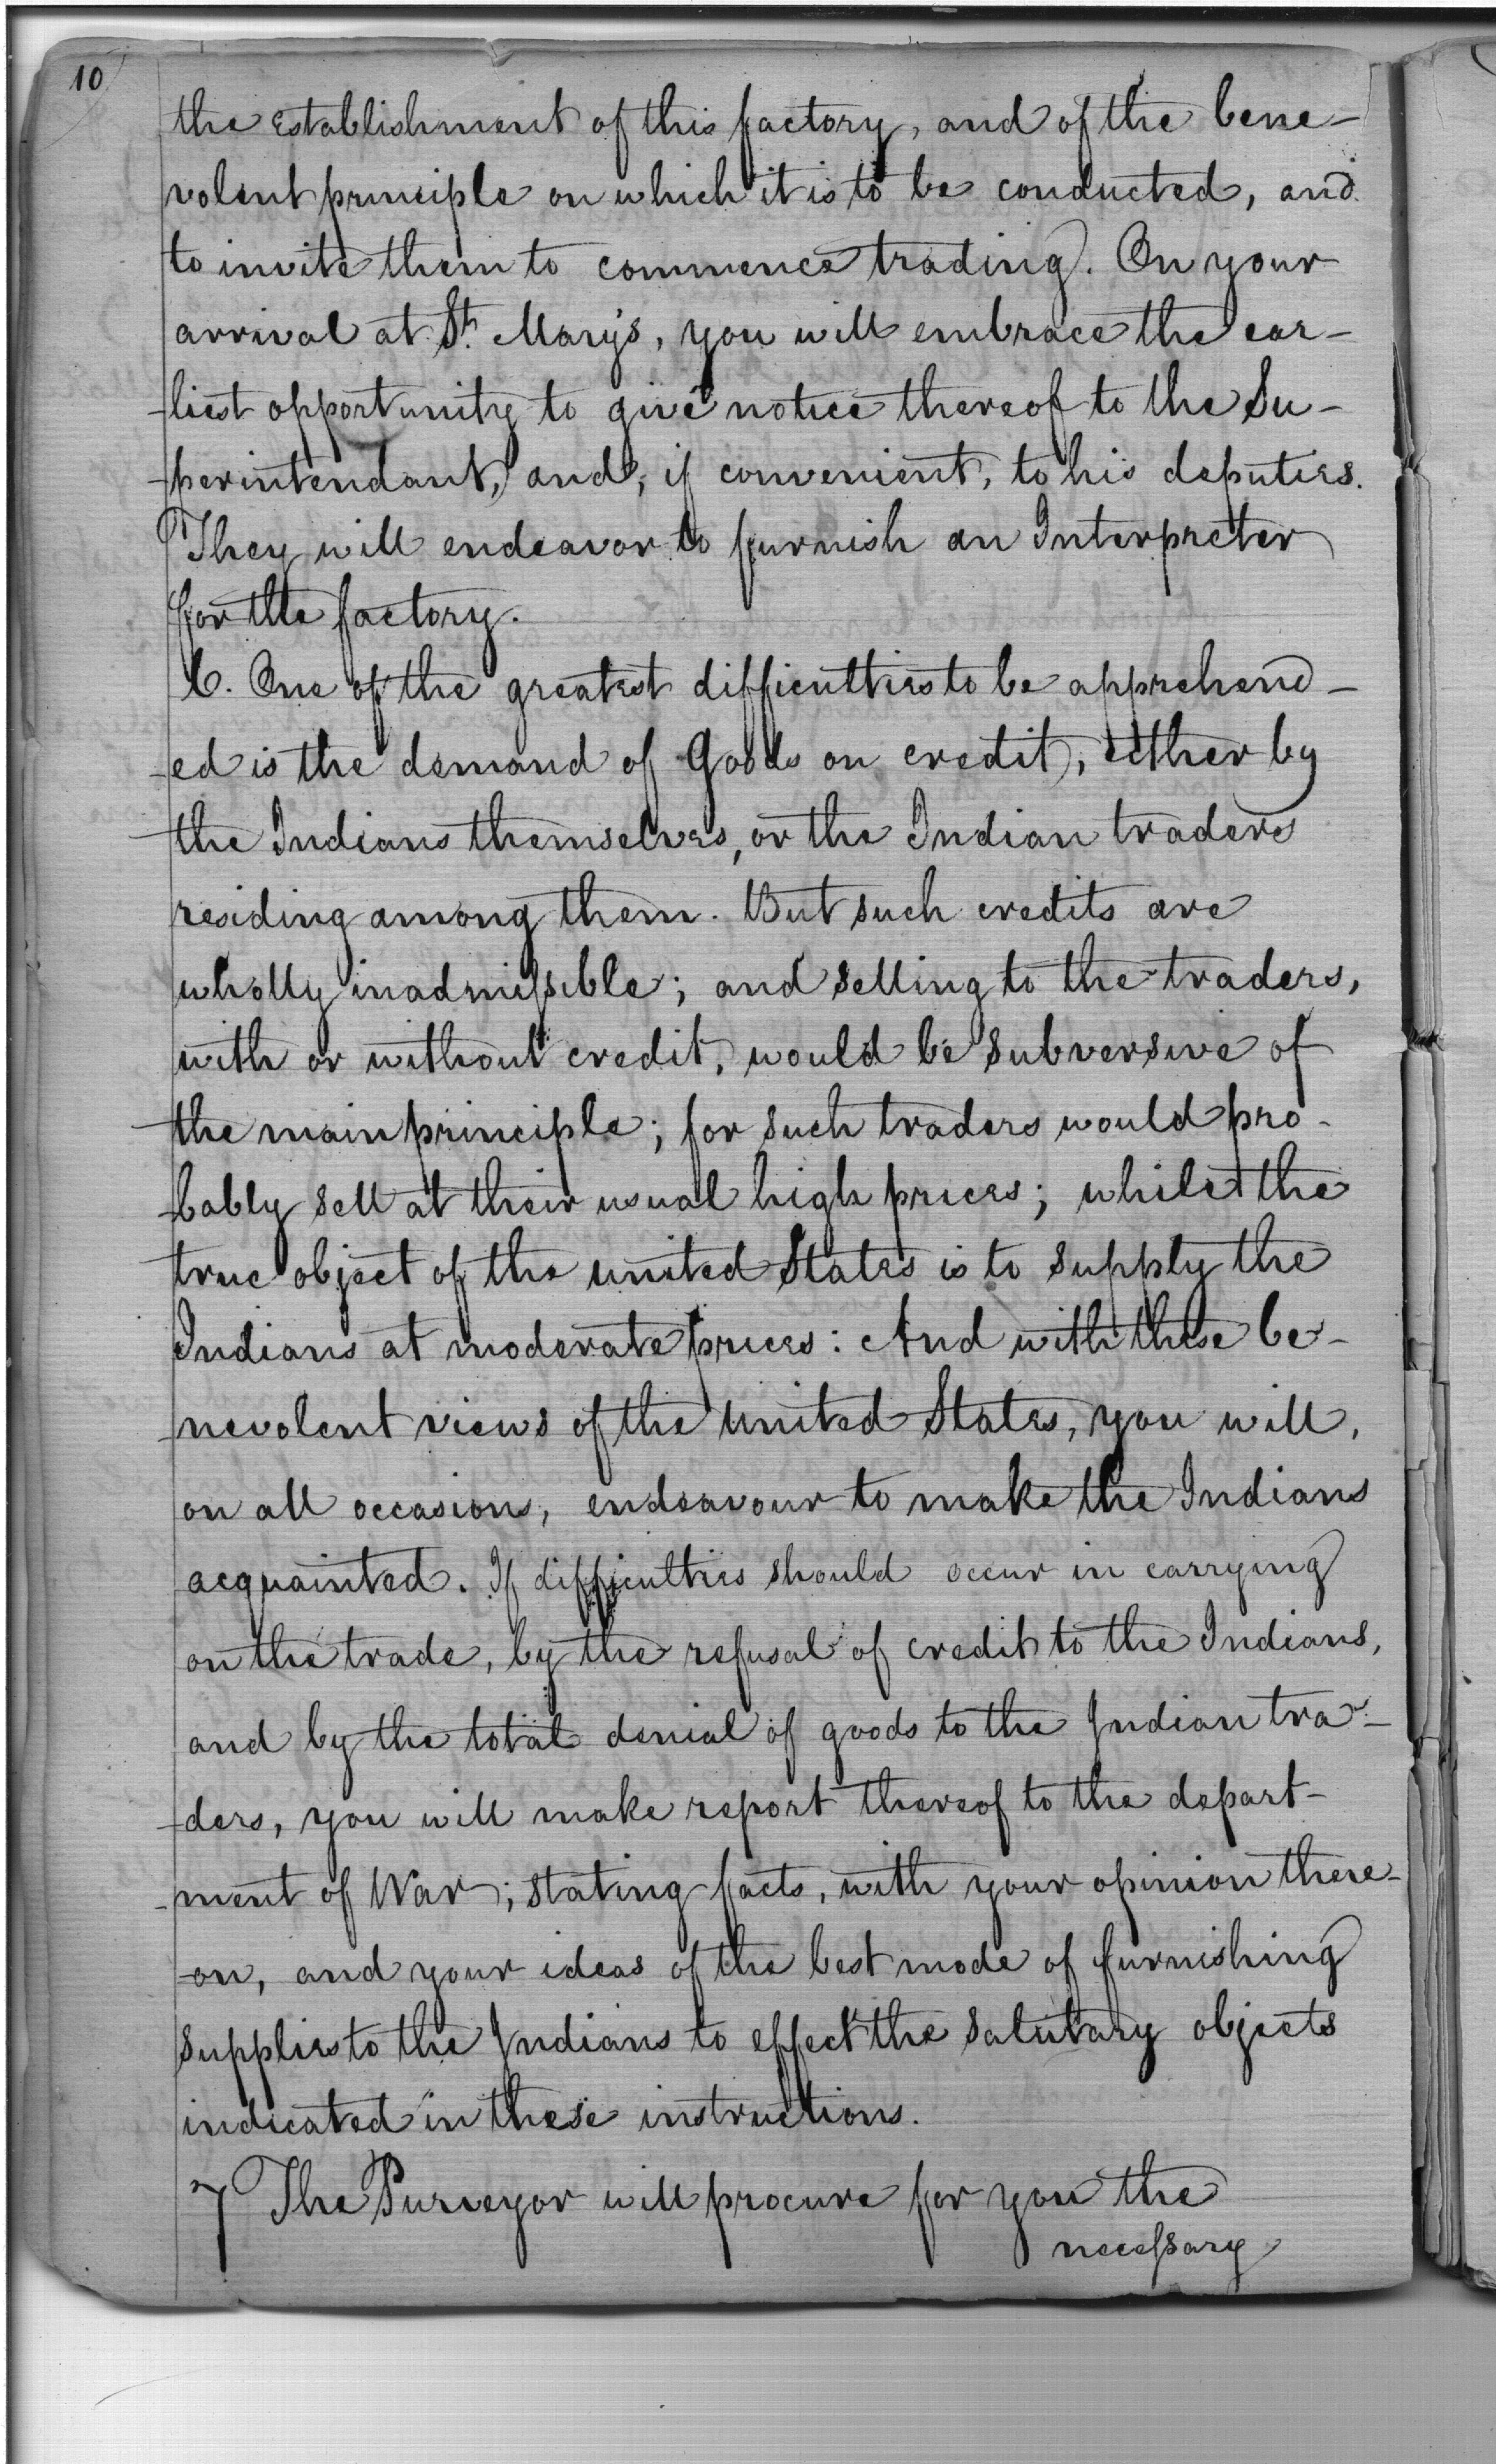 10
the establishment of this factory, and of the bene-
volent principle on which it is to be conducted, and
to invite them to commence trading. On your
arrival at St. Mary's, you will embrace the ear-
-liest opportunity to give notice thereof to the Su-
-perintendant, and, if convenient, to his deputies.
They will endeavor to furnish an Interpreter
for the factory.
6. One of the greatest difficulties to be apprehend-
-ed is the demand of Goods on credit, either by
the Indians themselves, or the Indian traders
residing among them. But such credits are
wholly inadmissible; and selling to the traders,
with or without credit, would be subversive of
the main principle; for such traders would pro-
-bably sell at their usual high prices; whilst the
true object of the united States is to supply the
Indians at moderate prices: And with these be-
-nevolent views of the United States, you will,
on all occasions, endeavour to make the Indians
acquainted. If difficulties should occur in carrying
on the trade, by the refusal of credit to the Indians,
and by the total denial of goods to the Indian tra-
-ders, you will make report thereof to the depart-
-ment of War; stating facts, with your opinion there-
-on, and your ideas of the best mode of furnishing
supplies to the Indians to effect the salutary objects
indicated in these instructions.
7 The Purveyor will procure for you the
necessary